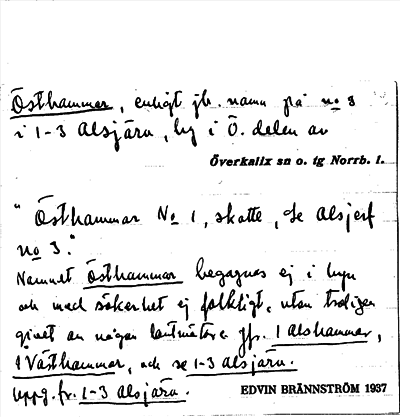 Östhammar, enligt jb. namn på no 3
i 1-3 Alsjärv, by i Ö. delen av
Överkalix sn o. tg Norrb. l.
"Östhammar No 1, skatte, se Alsjerf
no 3."
Namnet Östhammar begagnas ej i byn
och med säkerhet ej folkligt, utan troligen
givet av någon lantmätare jfr. 1 Alshammar,
1 Västhammar, och se 1-3 Alsjärv.
Uppg. fr. 1-3 Alsjärv.
EDVIN BRÄNNSTRÖM 1937